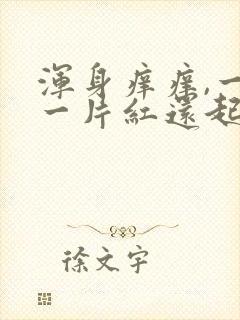 渾身痒痒,一
一片紅還起
徐文宇